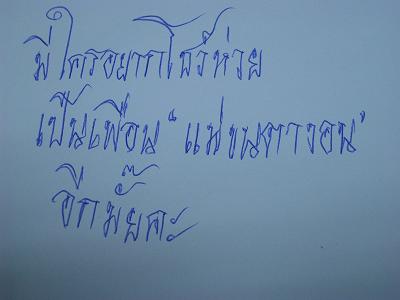 มีใครอยากโชว์ห่วย
เป็นเพื่อน "แม่ขนตางอน"
อีกมั๊ยคะ